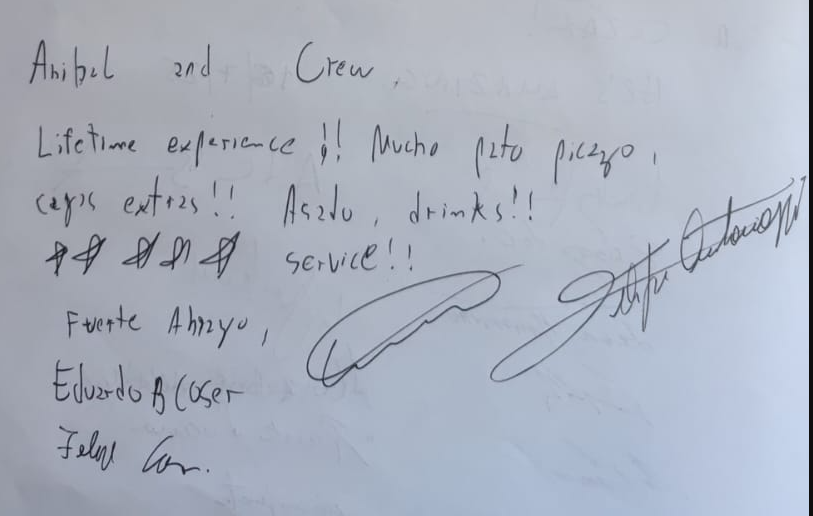 Anibal and Crew,
Lifetime experience !! Mucho pato picazo,
cajas extras!! Asado, drinks!!
service!!
Fuerte Abrazo,
Eduardo B Coser
Felipe